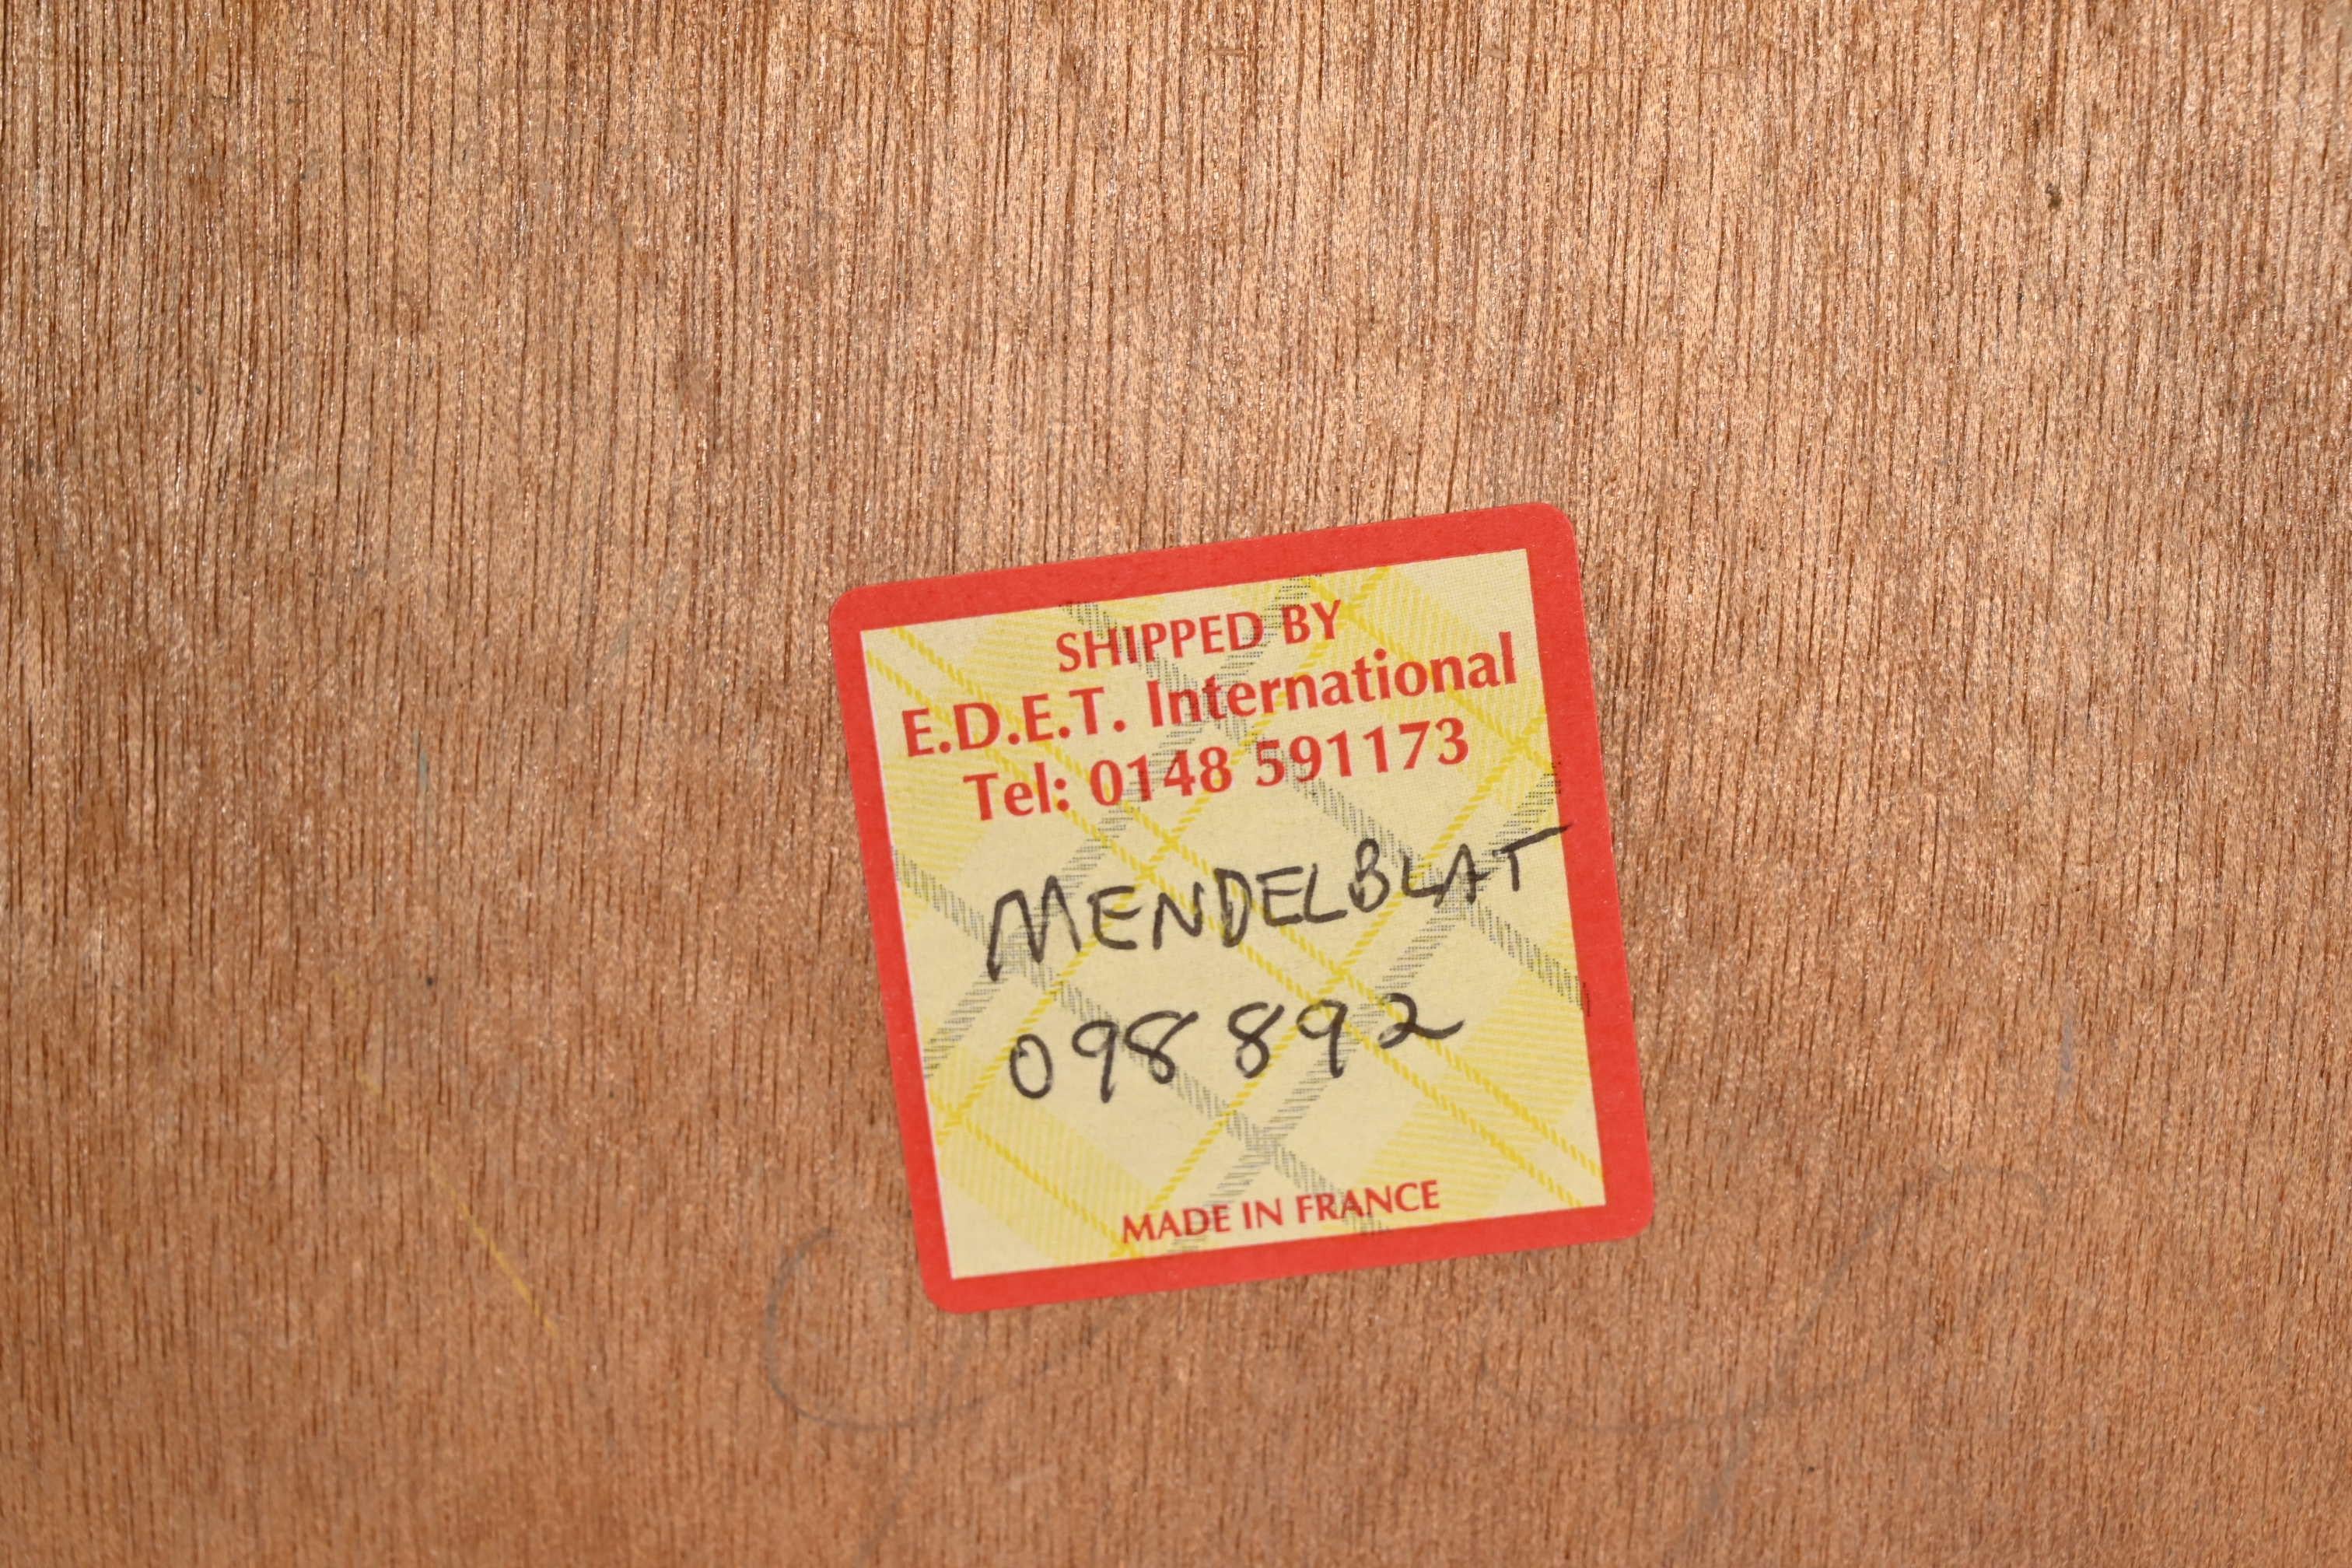 SHIPPED BY
E.D.E.T. International
Tel: 0148 591173
MENDELBLAT
098892
MADE IN FRANCE